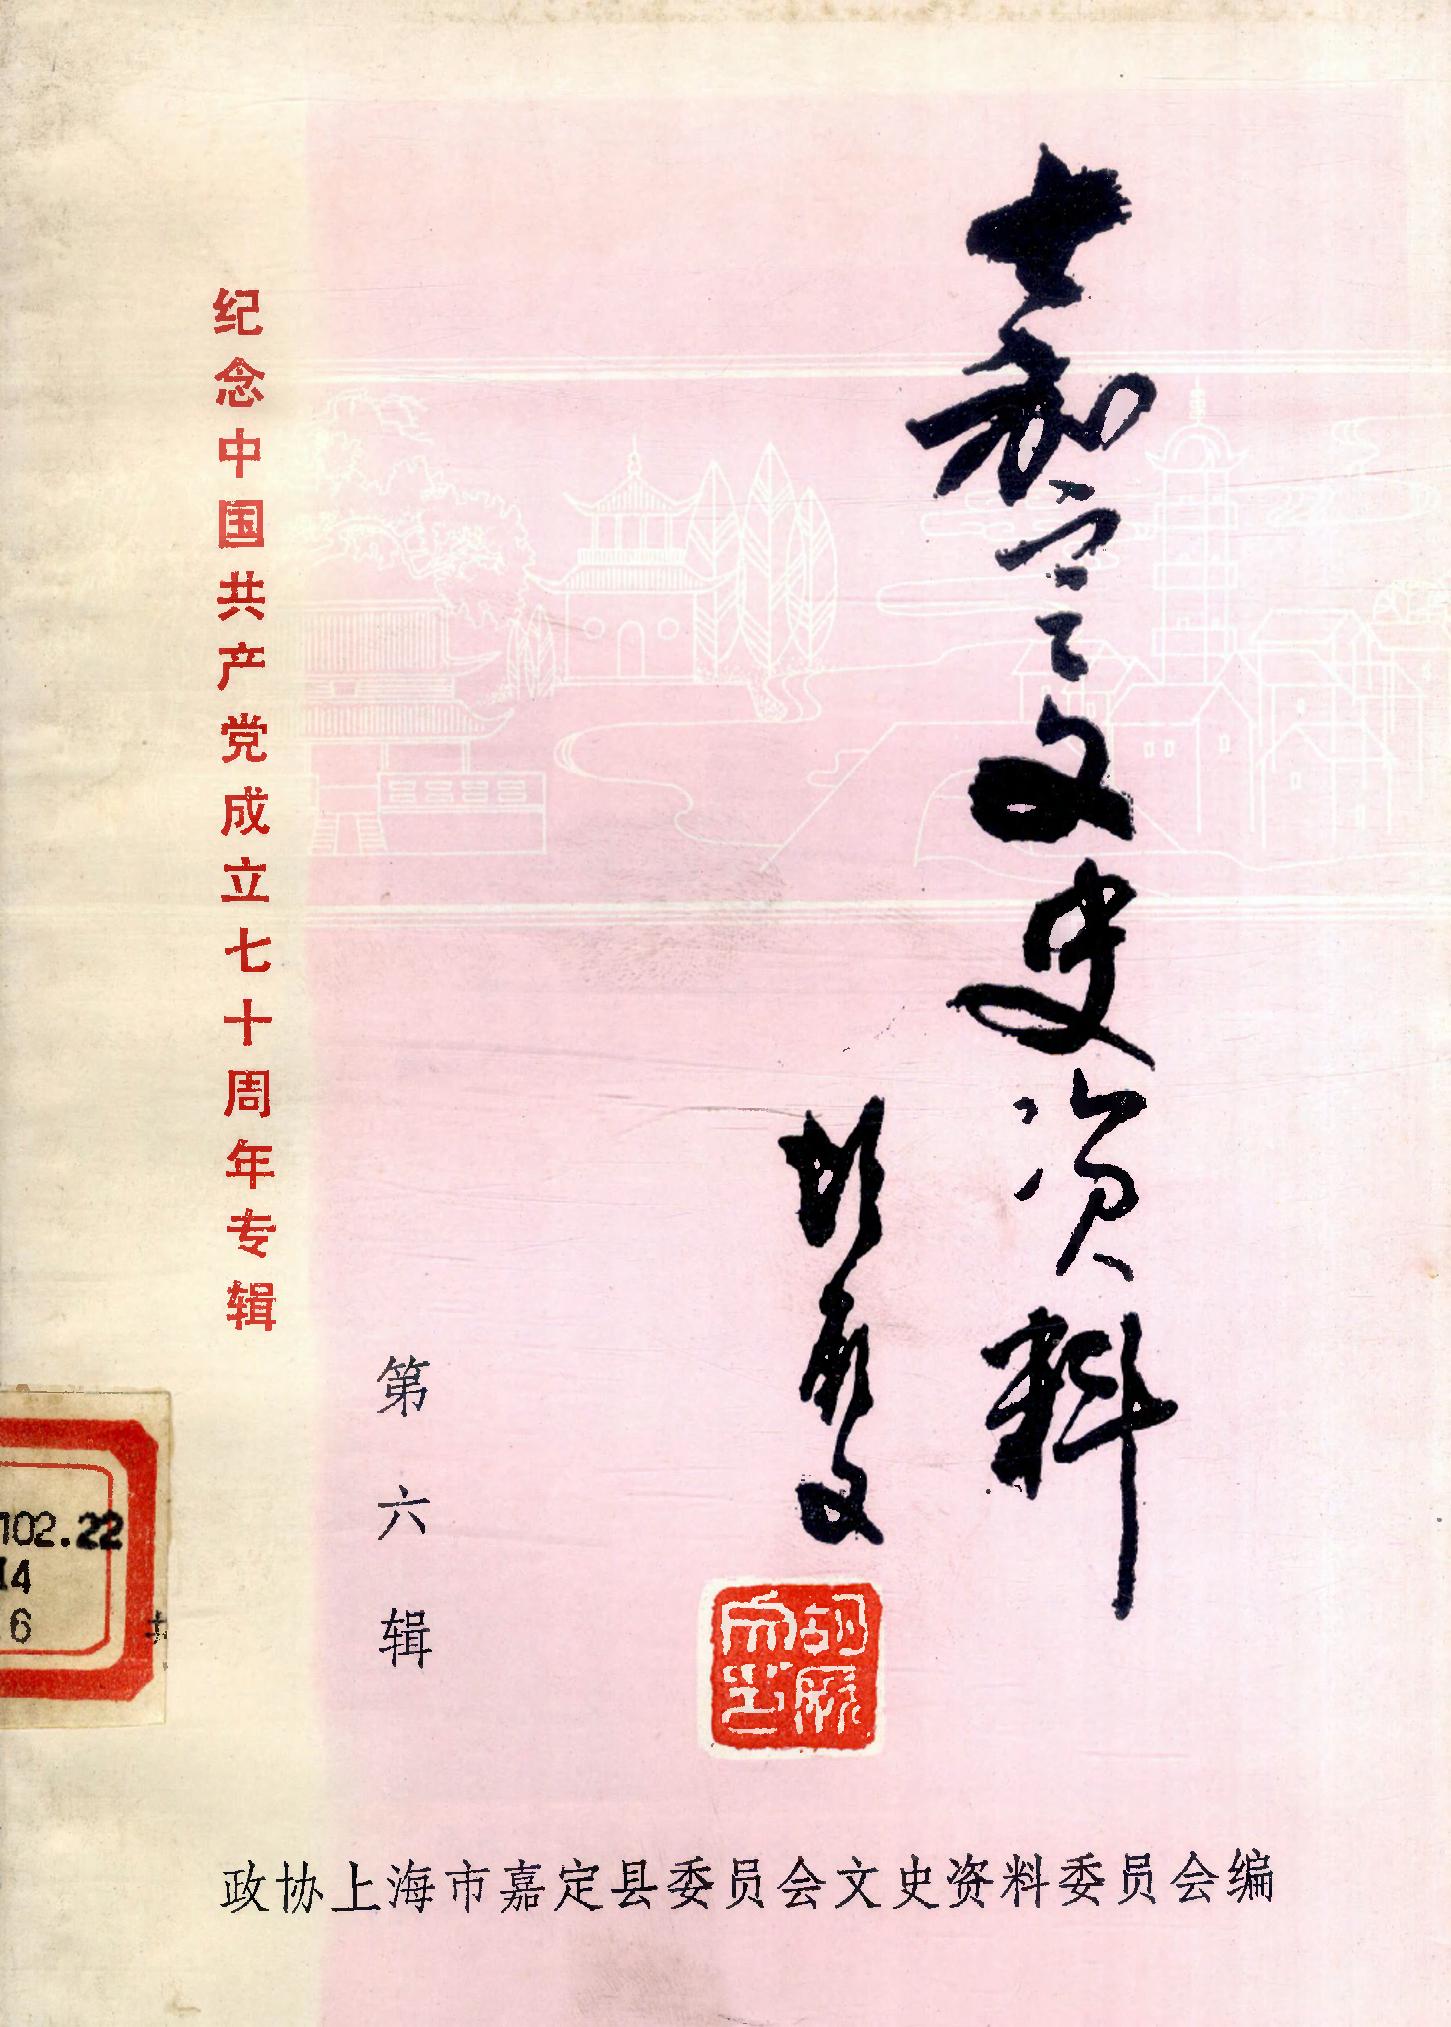 嘉定文史资料
胡厥文
胡厥
文
纪念中国共产党成立七十周年专辑
第六辑
102.22
14
6
政协上海市嘉定县委员会文史资料委员会编